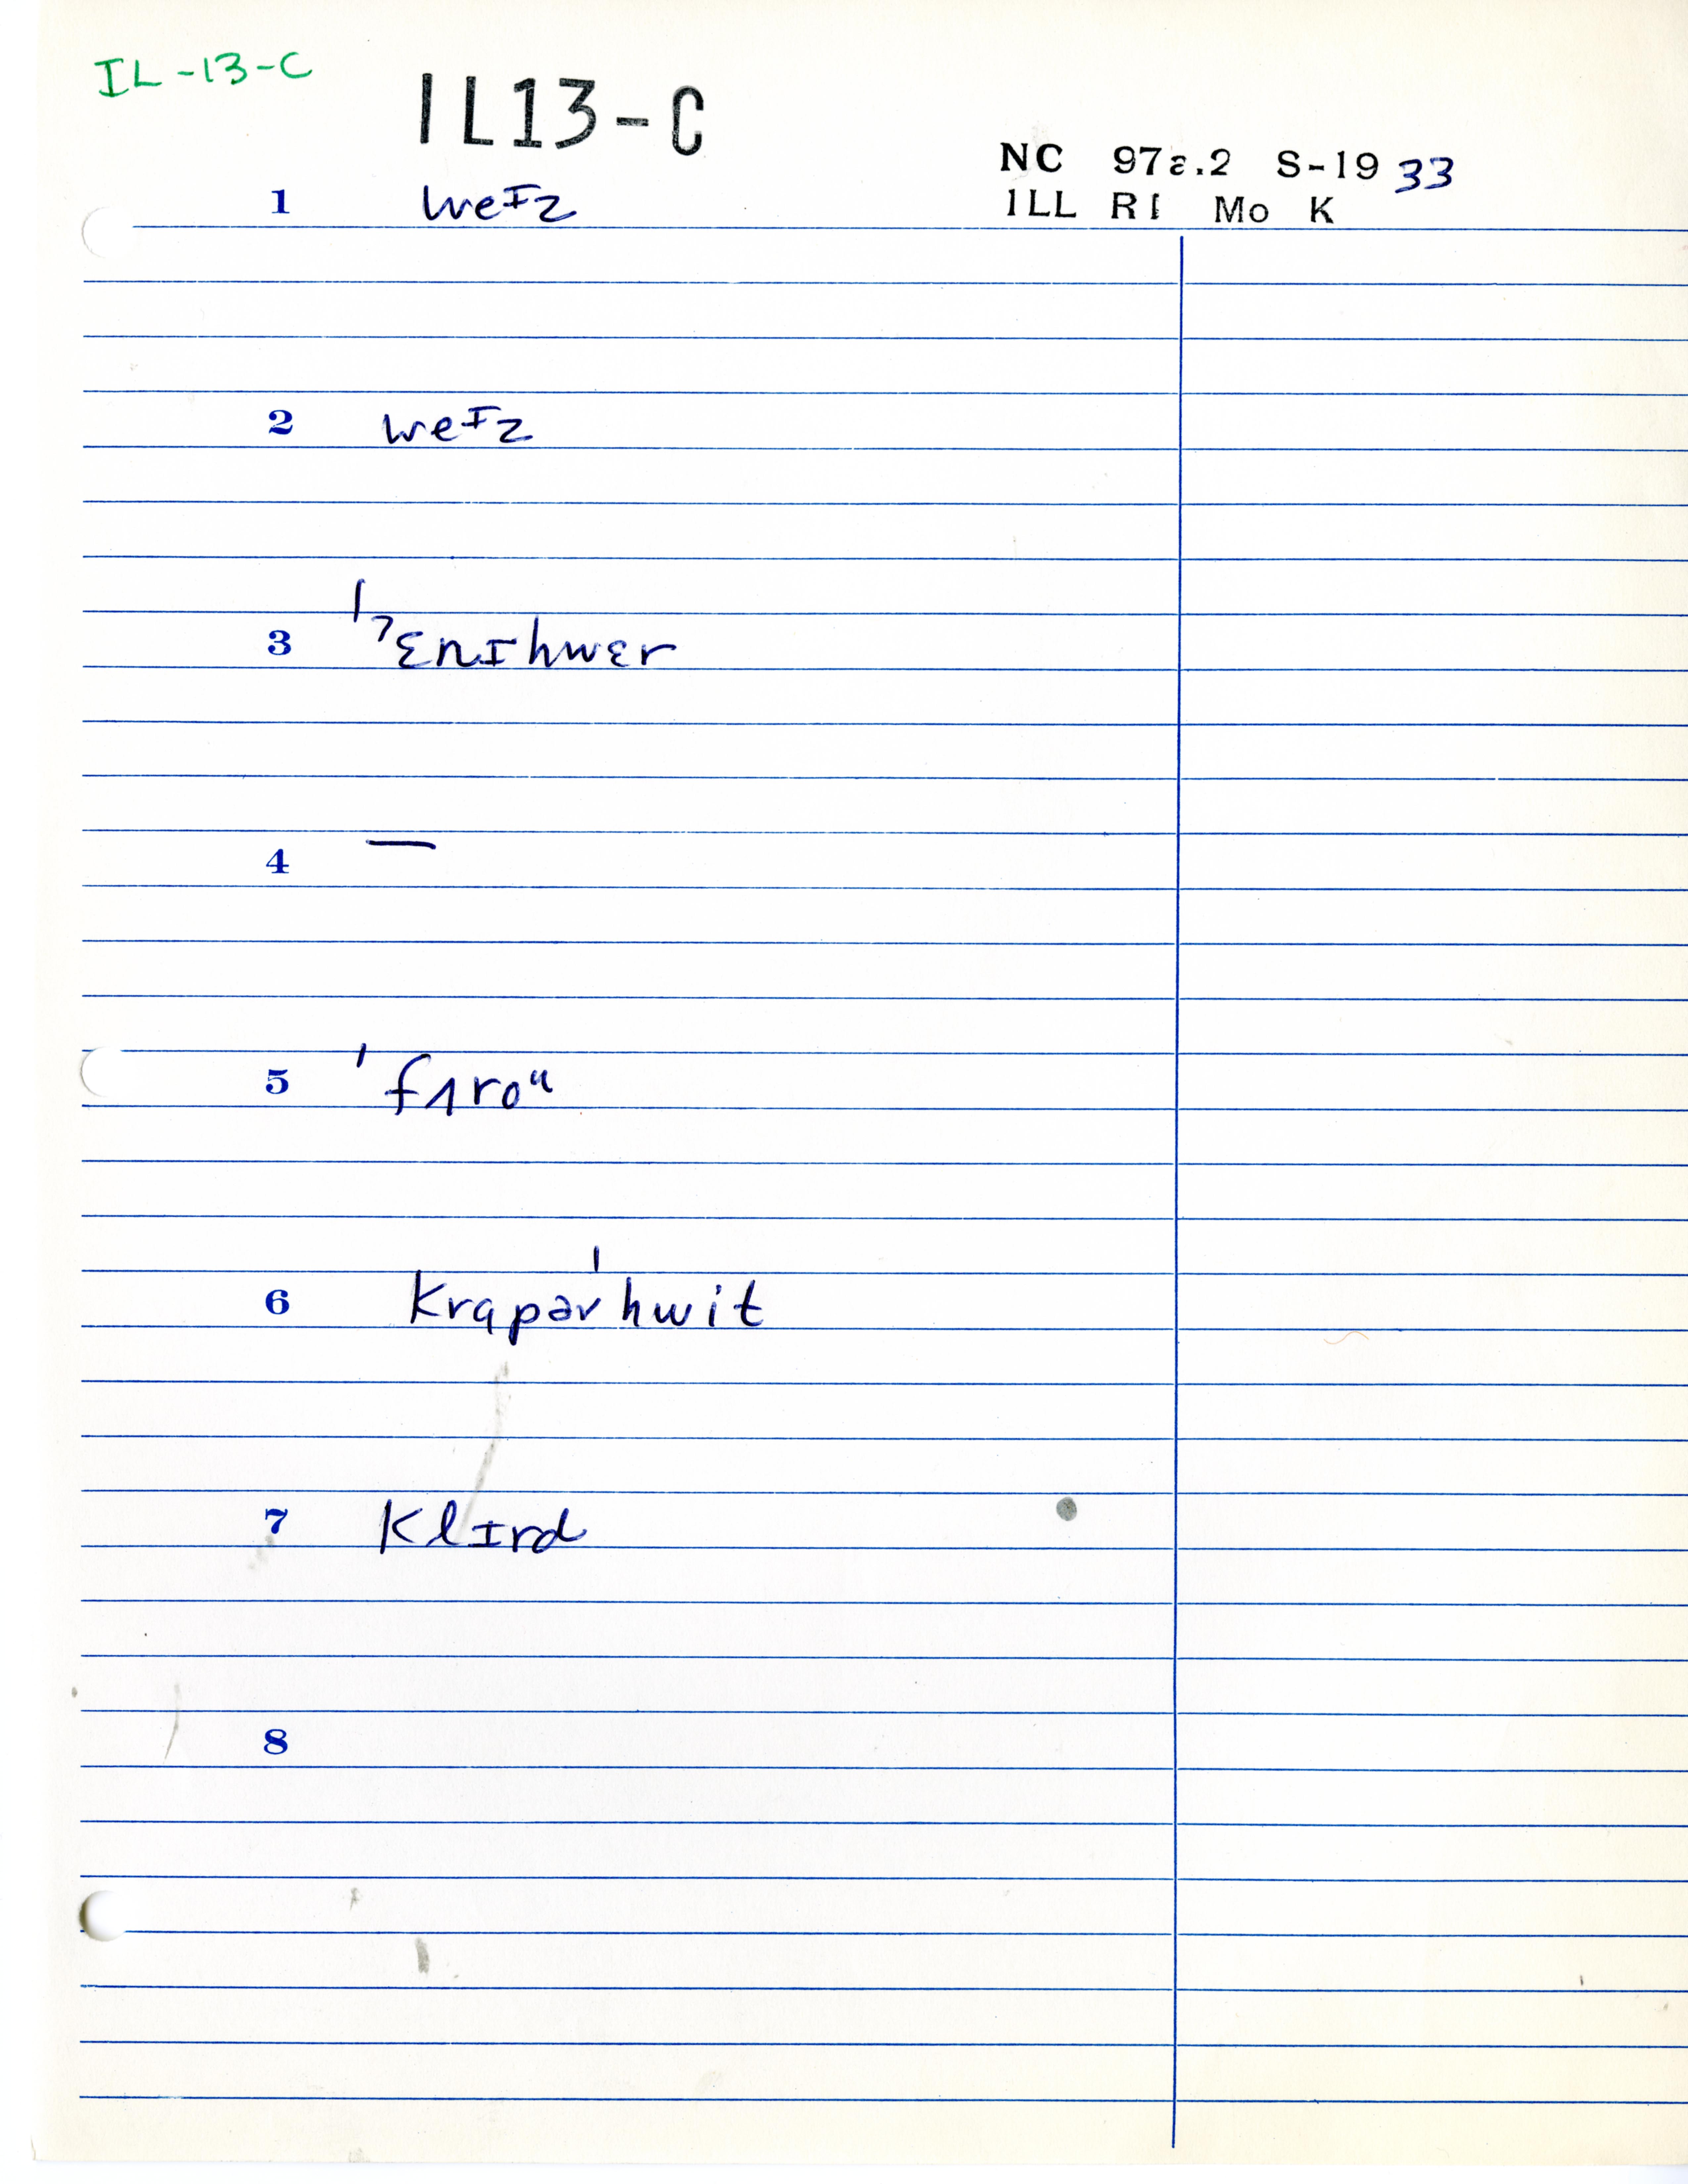 IL-13-C
IL13-C
NC 978.2 S-19 33
ILL RI Mo K
1 weᴵz
2 weᴵz
3 ˈˀɛnɪhwɛr
4 —
5 ˈfʌroᵘ
6 krapərˈhwit
7 klɪrd
8